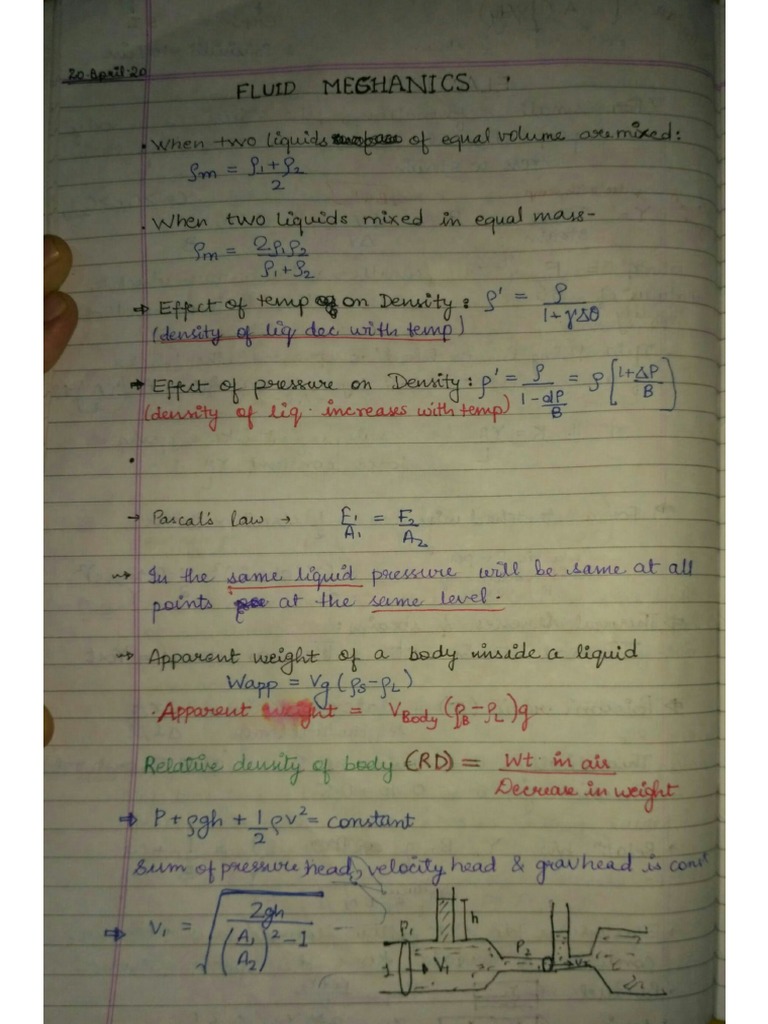 20-April-20
FLUID MECHANICS
. When two liquids of equal volume are mixed:
ρm = ρ1+ρ2 / 2
. When two liquids mixed in equal mass-
ρm = 2ρ1ρ2 / ρ1+ρ2
→ Effect of temp on Density: ρ' = ρ / 1+γΔθ
(density of liq dec with temp)
→ Effect of pressure on Density: ρ' = ρ / 1-dP/B = ρ[1+ΔP/B]
(density of liq. increases with temp)
.
→ Pascal's law → F1/A1 = F2/A2
→ In the same liquid pressure will be same at all
points at the same level.
→ Apparent weight of a body inside a liquid
Wapp = Vg(ρS-ρL)
. Apparent weight = VBody(ρB-ρL)g
Relative density of body (RD) = Wt. in air / Decrease in weight
⇒ P+ρgh+1/2ρv²= constant
Sum of pressure head, velocity head & grav head is const
⇒ V1 = √(2gh / (A1/A2)²-1)
h
P1
P2
1
V1
V2